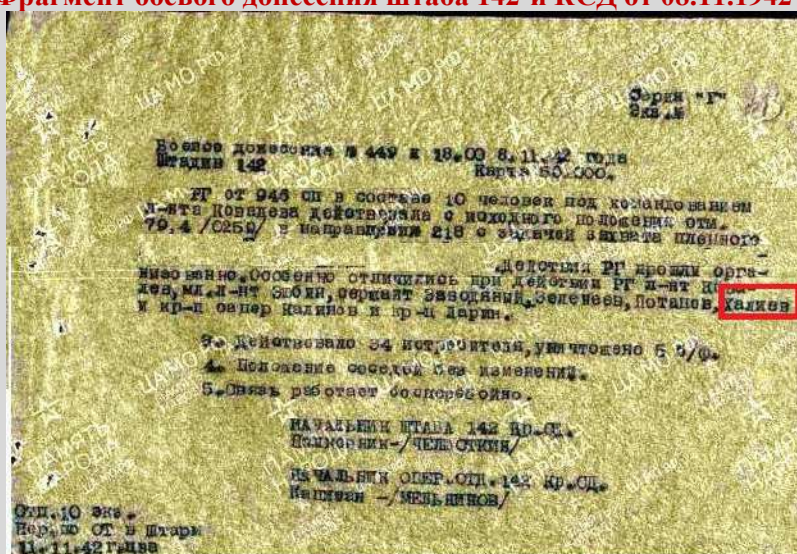 Фрагмент боевого донесения штаба 142-й КСД от 08.11.1942
Серия "Г"
Экз.№
Боевое донесение № 449 к 18.00 8.11.42 года
Штадив 142 Карта 50.000.
РГ от 946 сп в составе 10 человек под командованием
л-нта Ковалева действовала с исходного положения отм.
79,4 /0259/ в направлении 218 с задачей захвата пленного
.Действия РГ прошли орга-
низованно.Особенно отличились при действии РГ л-нт Кова-
лев, мл.л-нт сержант Заводяный, Зеленеев, Потапов, Халиев
и кр-ц сапер Калинов и кр-ц Ларин.
3. Действовало 34 истребителя, уничтожено 5 с/ф.
4. Положение соседей без изменений.
5.Связь работает бесперебойно.
НАЧАЛЬНИК ШТАБА 142 КР.СД.
Полковник-/ЧЕЛЮСТКИН/
НАЧАЛЬНИК ОПЕР.ОТД.142 КР.СД.
Капитан -/МЕЛЬНИКОВ/
ОТП.10 экз.
11.11.42г.